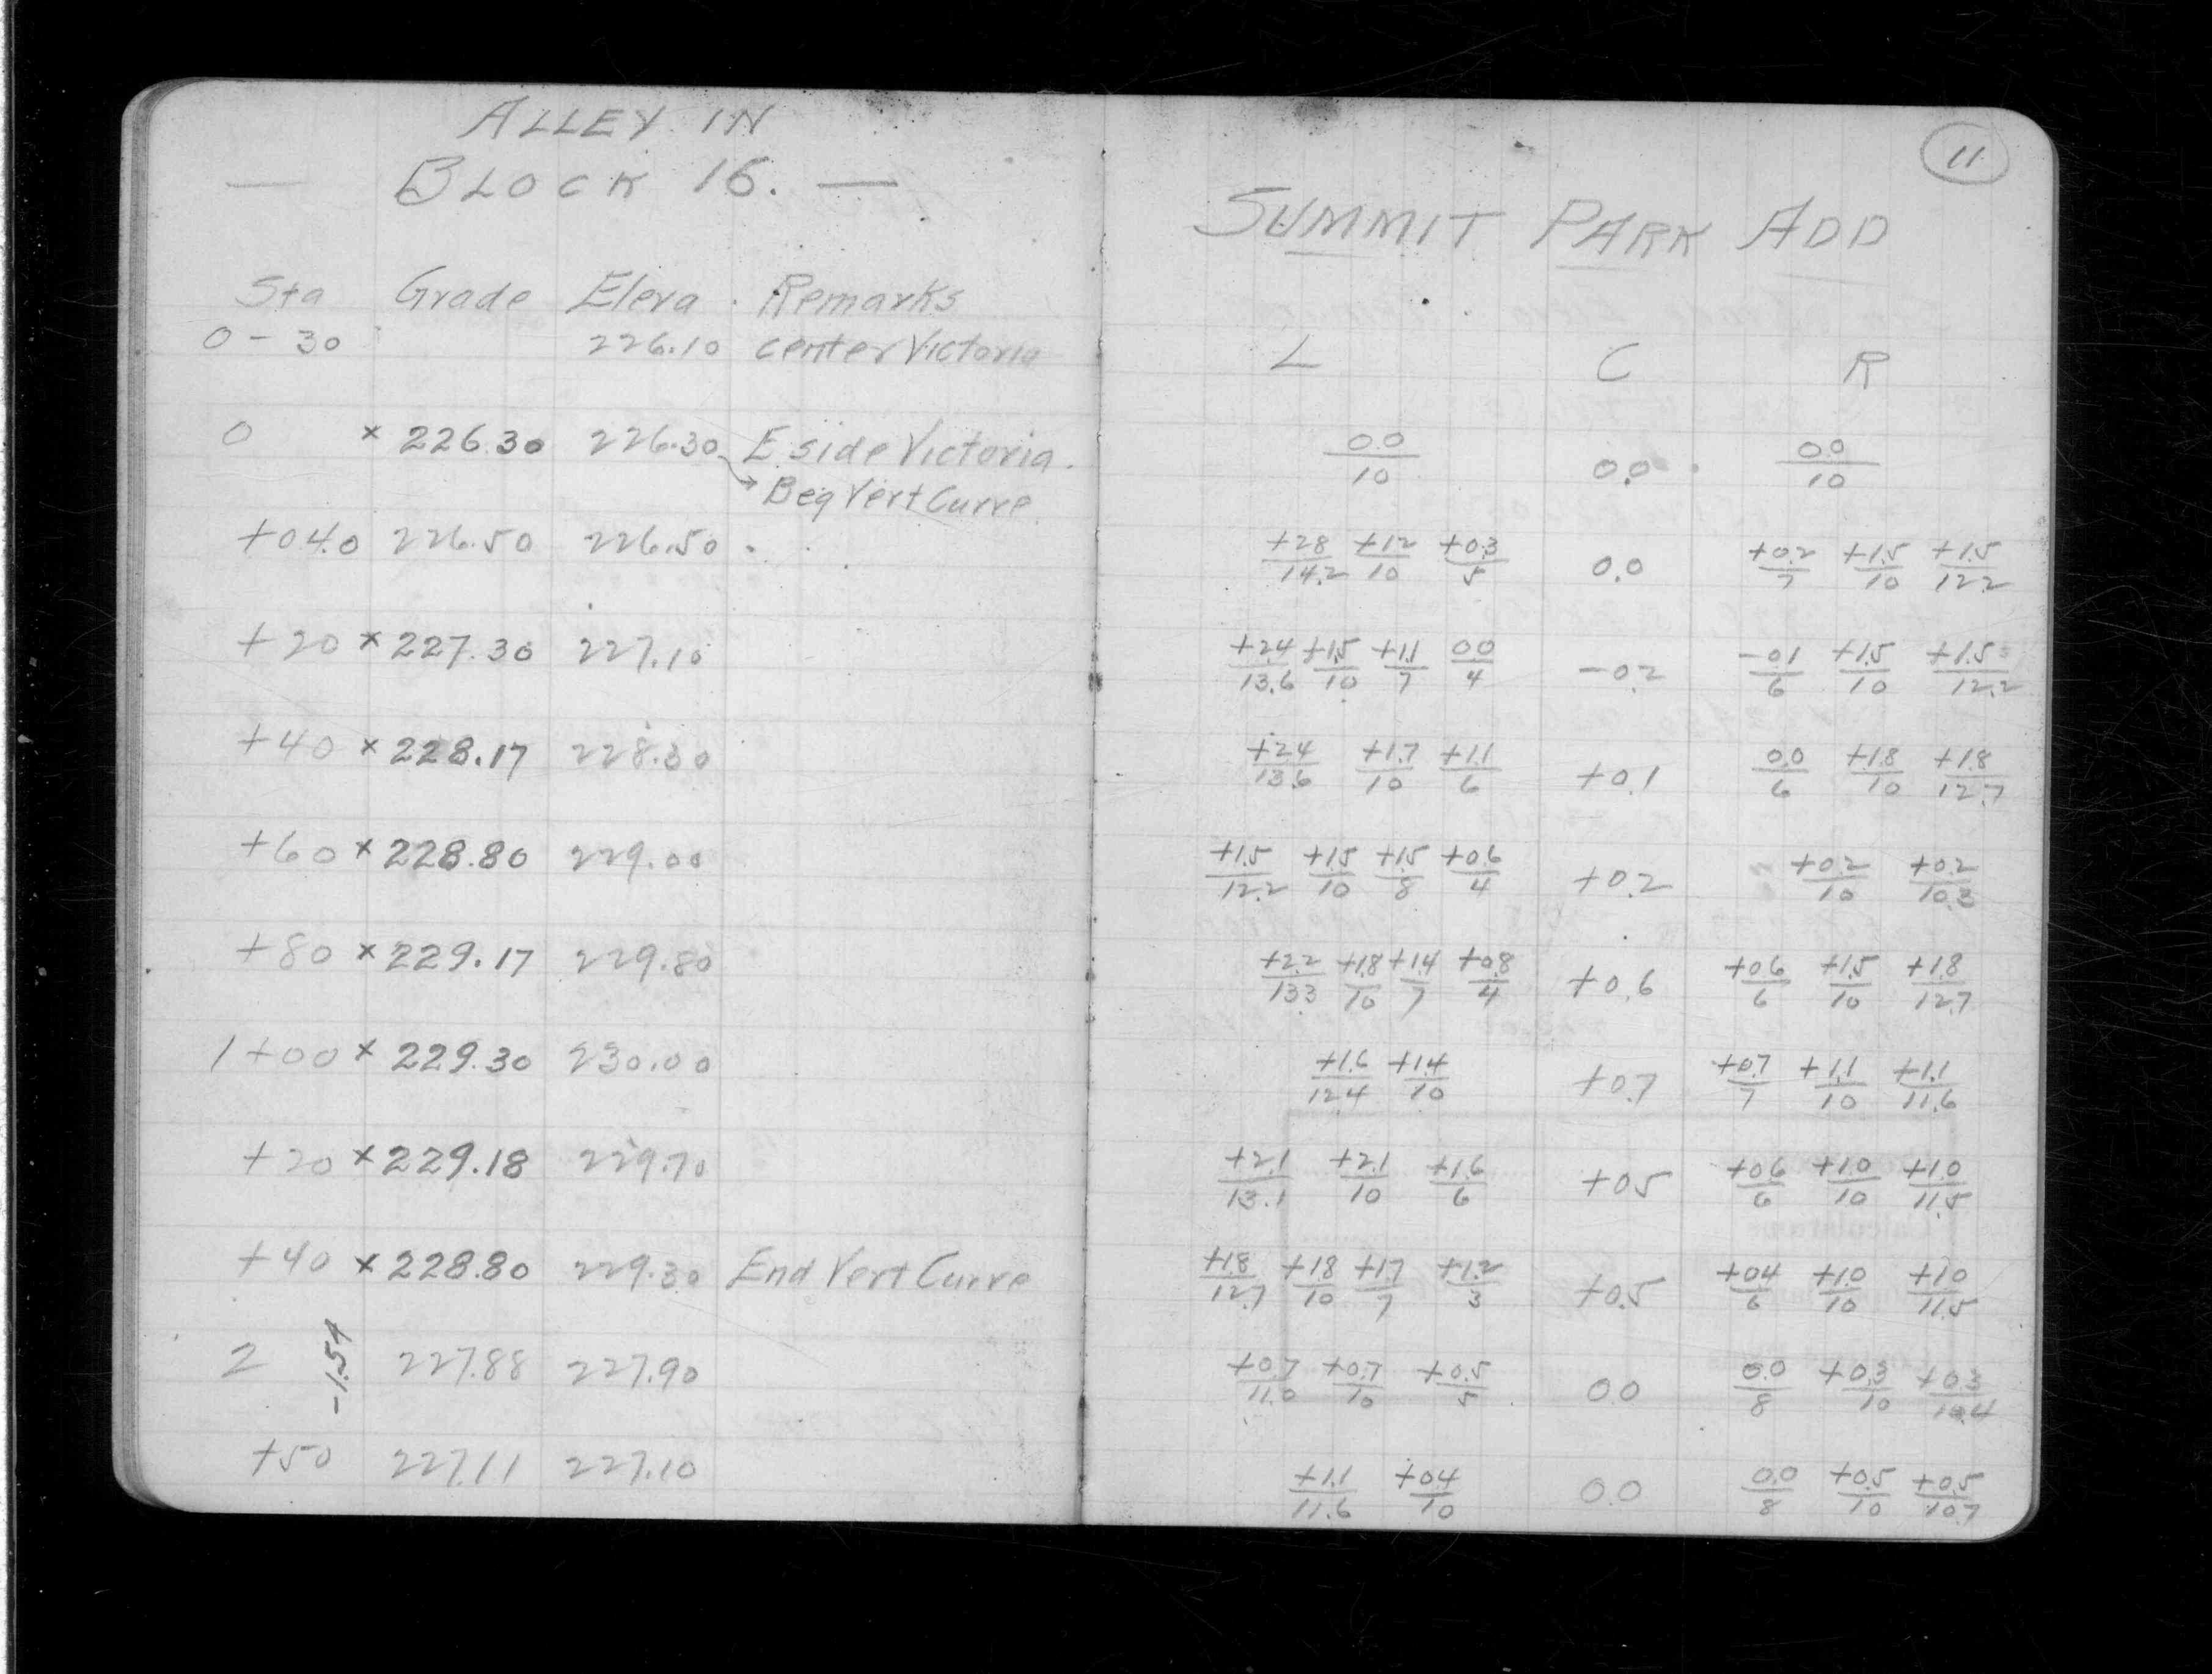 ALLEY IN
— BLOCK 16. —
Sta Grade Eleva. Remarks
0-30 226.10 center Victoria
0 × 226.30 226.30 E. side Victoria.
→ Beg Vert Curve.
+04.0 226.50 226.50
+20 × 227.30 227.10
+40 × 228.17 228.30
+60 × 228.80 229.00
+80 × 229.17 229.80
1+00 × 229.30 230.00
+20 × 229.18 229.70
+40 × 228.80 229.30 End Vert Curve
-1.54
2 227.88 227.90
+50 227.11 227.10
11
SUMMIT PARK ADD
L C R
0.0/10 0.0 0.0/10
+2.8/14.2 +1.2/10 +0.3/5 0.0 +0.2/7 +1.5/10 +1.5/12.2
+2.4/13.6 +1.5/10 +1.1/7 0.0/4 -0.2 -0.1/6 +1.5/10 +1.5/12.2
+2.4/13.6 +1.7/10 +1.1/6 +0.1 0.0/6 +1.8/10 +1.8/12.7
+1.5/12.2 +1.5/10 +1.5/8 +0.6/4 +0.2 +0.2/10 +0.2/10.3
+2.2/13.3 +1.8/10 +1.4/7 +0.8/4 +0.6 +0.6/6 +1.5/10 +1.8/12.7
+1.6/12.4 +1.4/10 +0.7 +0.7/7 +1.1/10 +1.1/11.6
+2.1/13.1 +2.1/10 +1.6/6 +0.5 +0.6/6 +1.0/10 +1.0/11.5
+1.8/12.7 +1.8/10 +1.7/7 +1.2/3 +0.5 +0.4/6 +1.0/10 +1.0/11.5
+0.7/11.0 +0.7/10 +0.5/5 0.0 0.0/8 +0.3/10 +0.3/10.4
+1.1/11.6 +0.4/10 0.0 0.0/8 +0.5/10 +0.5/10.7